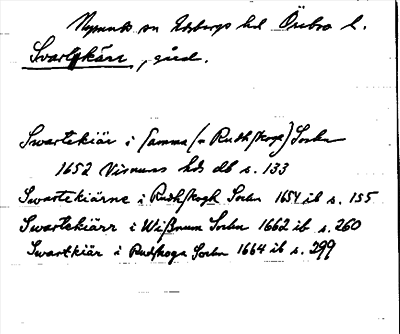 Nysunds sn Edsbergs hd Örebro l.
Svartkärr, gård.
Swartekiär i samma (ɔ: Rudhskoga) Sochn
1652 Visnums hds db s. 133
Swartekiärne i Rudhskogh Sochn 1654 ib s. 155
Swartekiärr i Wißnum Sochn 1662 ib s. 260
Swartkiär i Rudskoga Sochn 1664 ib s. 299